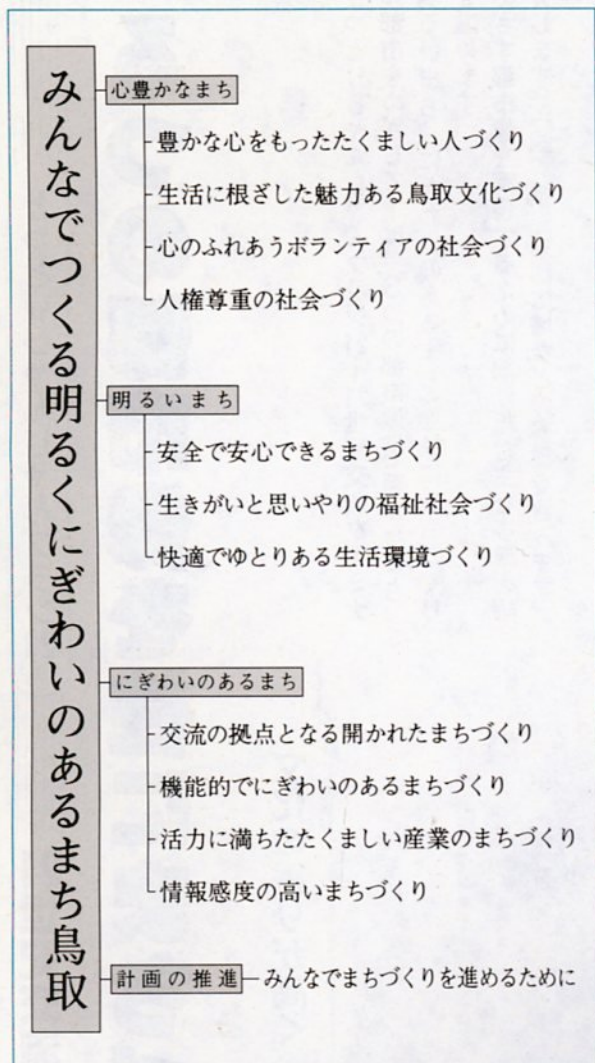 みんなでつくる明るくにぎわいのあるまち鳥取
心豊かなまち
豊かな心をもったたくましい人づくり
生活に根ざした魅力ある鳥取文化づくり
心のふれあうボランティアの社会づくり
人権尊重の社会づくり
明るいまち
安全で安心できるまちづくり
生きがいと思いやりの福祉社会づくり
快適でゆとりある生活環境づくり
にぎわいのあるまち
交流の拠点となる開かれたまちづくり
機能的でにぎわいのあるまちづくり
活力に満ちたたくましい産業のまちづくり
情報感度の高いまちづくり
計画の推進
みんなでまちづくりを進めるために